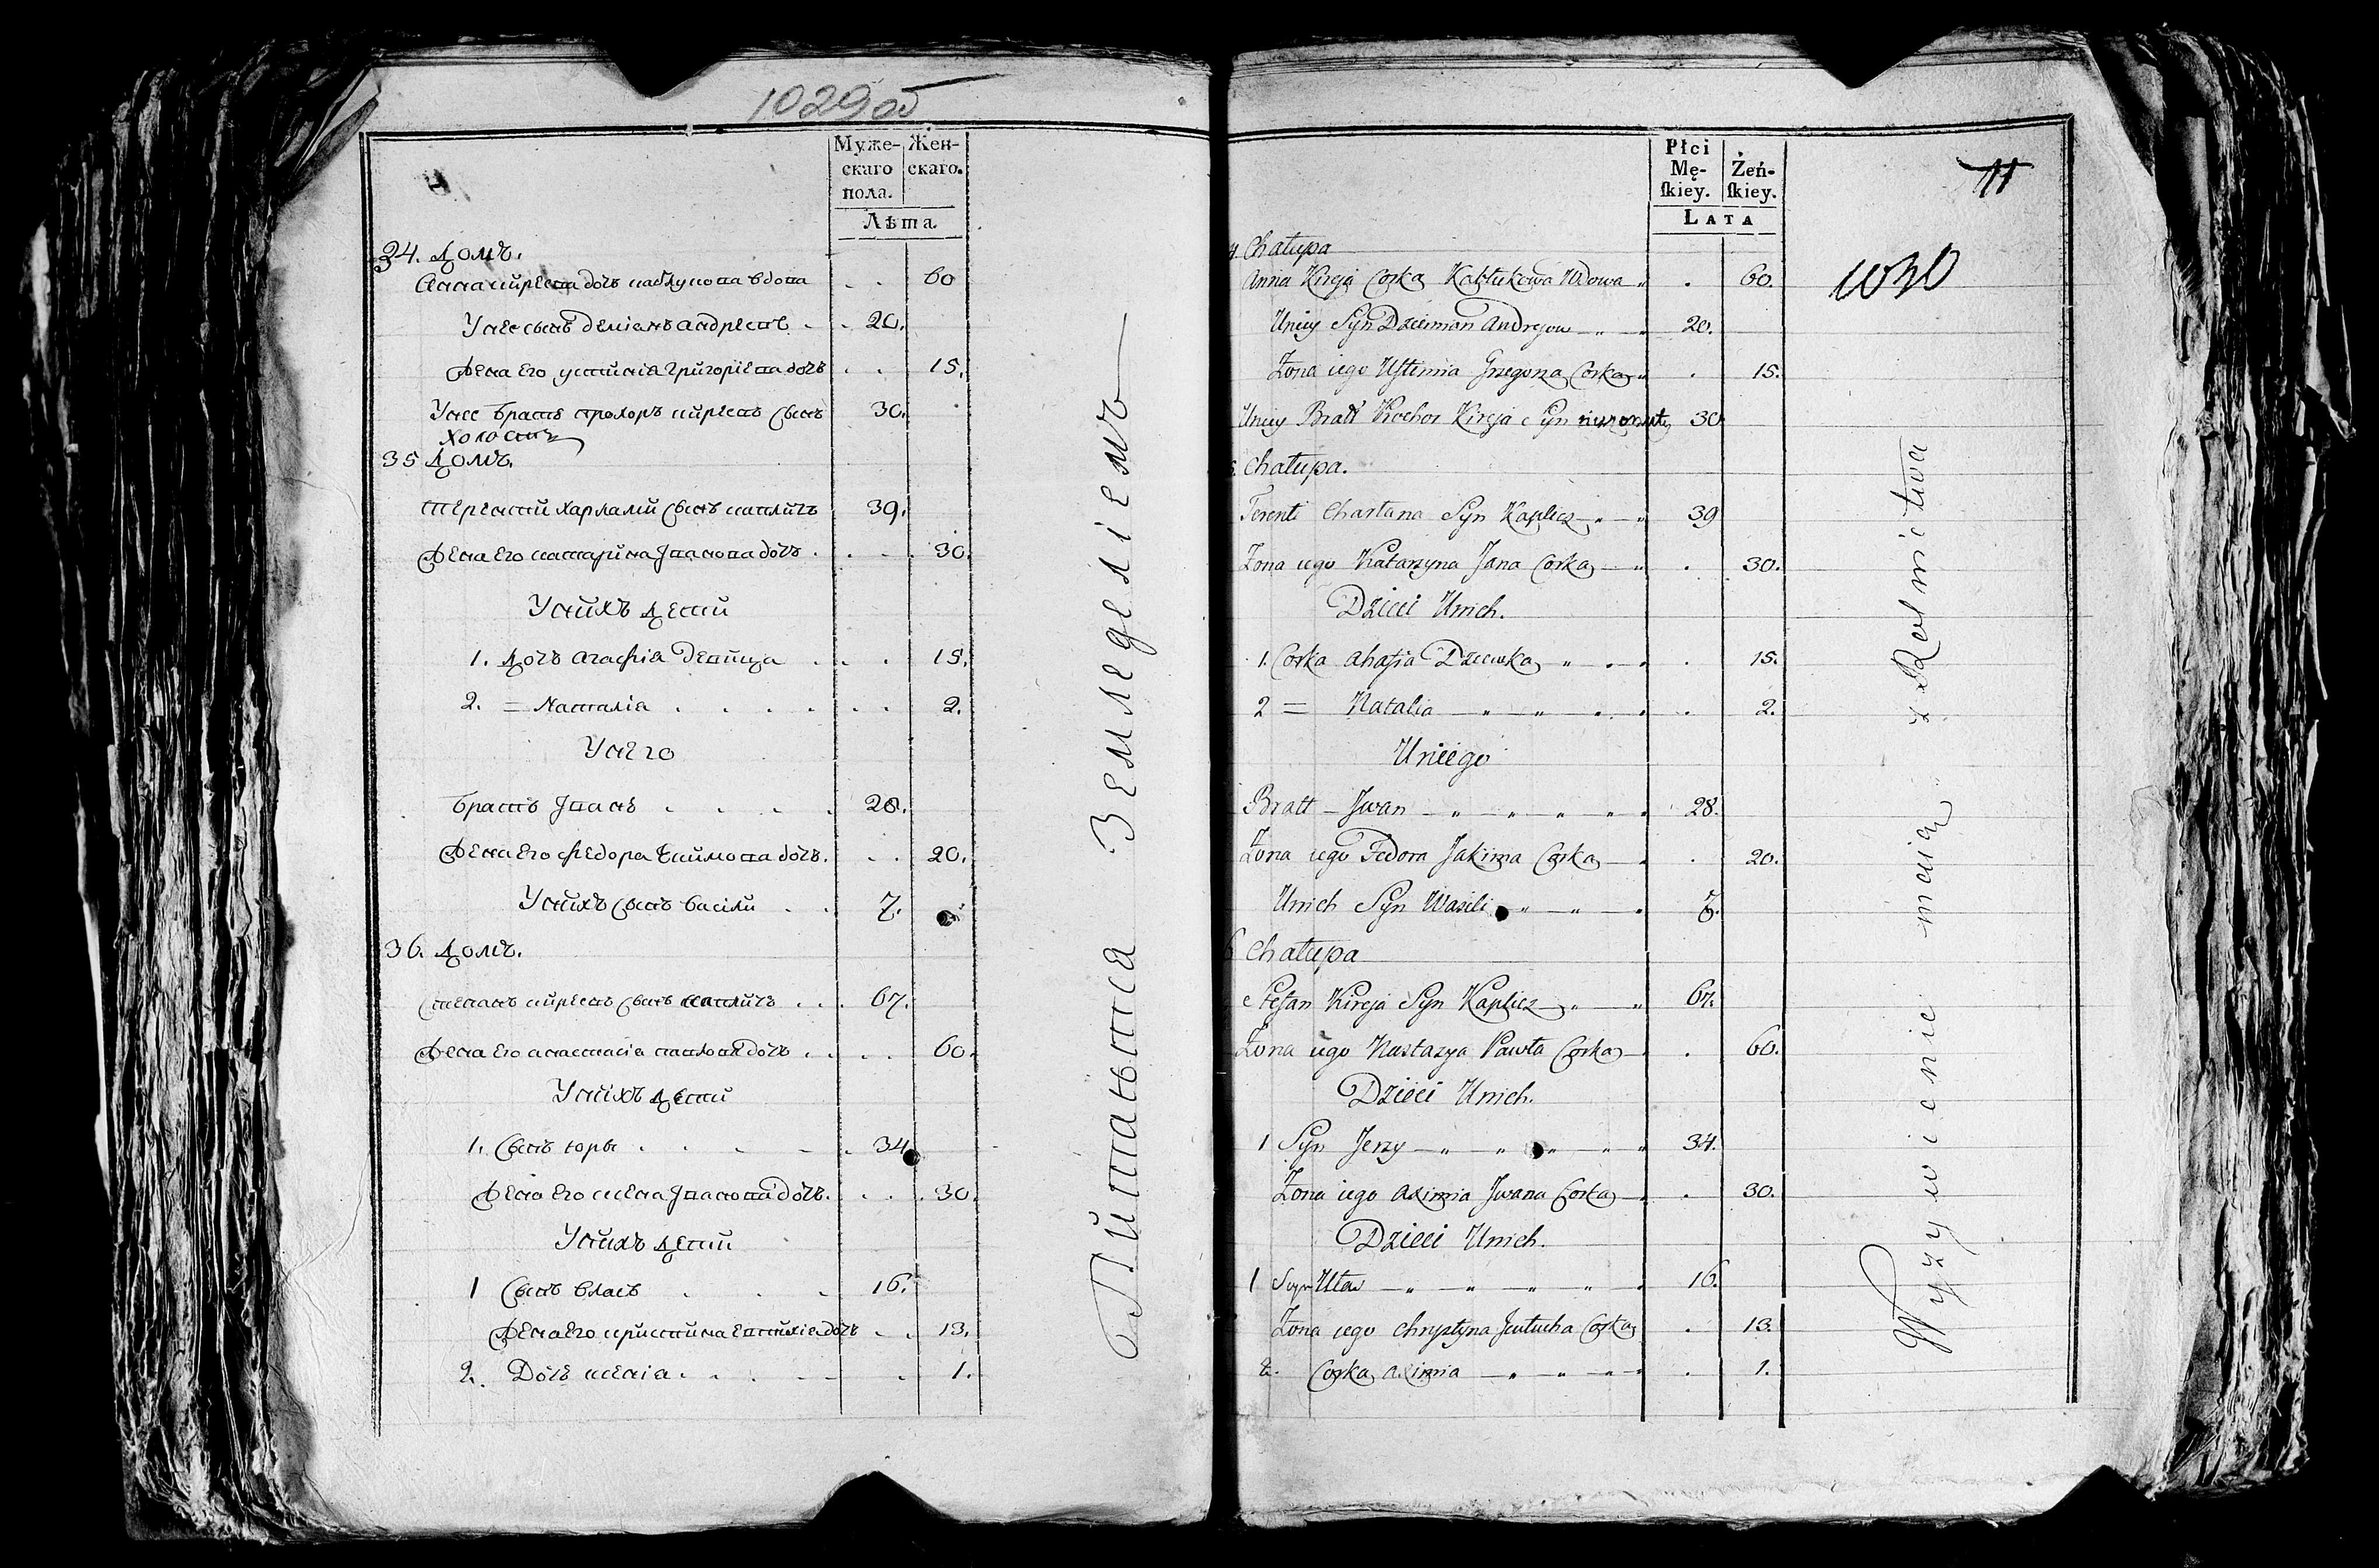 1029об
Муже-
скаго
пола.
Жен-
скаго.
Лѣта
34. Домъ.
Анна кирѣева дочь каблукова вдова . . 60
Унее сынъ деміянъ андреевъ . . 20.
Жена его устинія григоріева дочь . . 15.
Унее братъ прохоръ кирѣевъ сынъ 30.
холостъ
35 Домъ.
терентій харламіи сынъ капличъ 39.
Жена его катарина Іванова дочь . . . 30.
Унихъ дети
1. Дочь агафія девица . . . 15.
2. = Наталія . . . . . . 2.
Унего
братъ Іванъ . . . . 28.
Жена его федора Екимова дочь . . . 20.
Унихъ сынъ василіи . . 7.
36. Домъ.
степанъ кирѣевъ сынъ капличъ . . . 67.
Жена его анастасія павлова дочь . . . . 60.
Унихъ дети
1. Сынъ юрьі . . . . . 34
Жена его ксеня Іванова дочь . . . . 30.
Унихъ дети
1 Сынъ власъ . . . 16.
Жена его кристина Евтихіева дочь . . 13.
2. Дочь ксенія . . . . . 1.
Питаются Земледеліемъ
Płci
Mę-
ſkiey.
Żeń-
ſkiey.
LATA
11
1030
4. Chałupa
Anna Kireja Corka Kabłukowa Wdowa " . 60.
Uniey Syn Dziemian Andrejow — " — " 20.
Żona iego Ustimia Grzegorza Corka — " . 15.
Uniey Bratt Prochor Kireja Syn nieżonaty 30
5. Chałupa.
Terenti Charłana Syn Kaplicz — " — " 39
Żona iego Katarzyna Jana Corka — " . 30.
Dzieci Unich.
1. Corka Ahafia Dziewka " . . . 15.
2 = Natalia — " — " . . . 2.
Uniego
Bratt — Jwan — " — " " " 28.
Żona iego Fedora Jakima Corka — . . 20.
Unich Syn Wasili — " — " — 7.
6 Chałupa
Stefan Kireja Syn Kaplicz — " " 67.
Żona iego Nastazya Pawła Corka — . 60.
Dzieci Unich.
1 Syn Jerzy — " — " " " " 34.
Żona iego Aximia Jwana Corka — . 30.
Dzieci Unich.
1 Syn Ułas — " — " — " — " 16.
Żona iego Chrystyna Jeutucha Corka . 13.
2. Corka Aximia — " — " — " . 1.
Wyzywienie maią z Rolnictwa